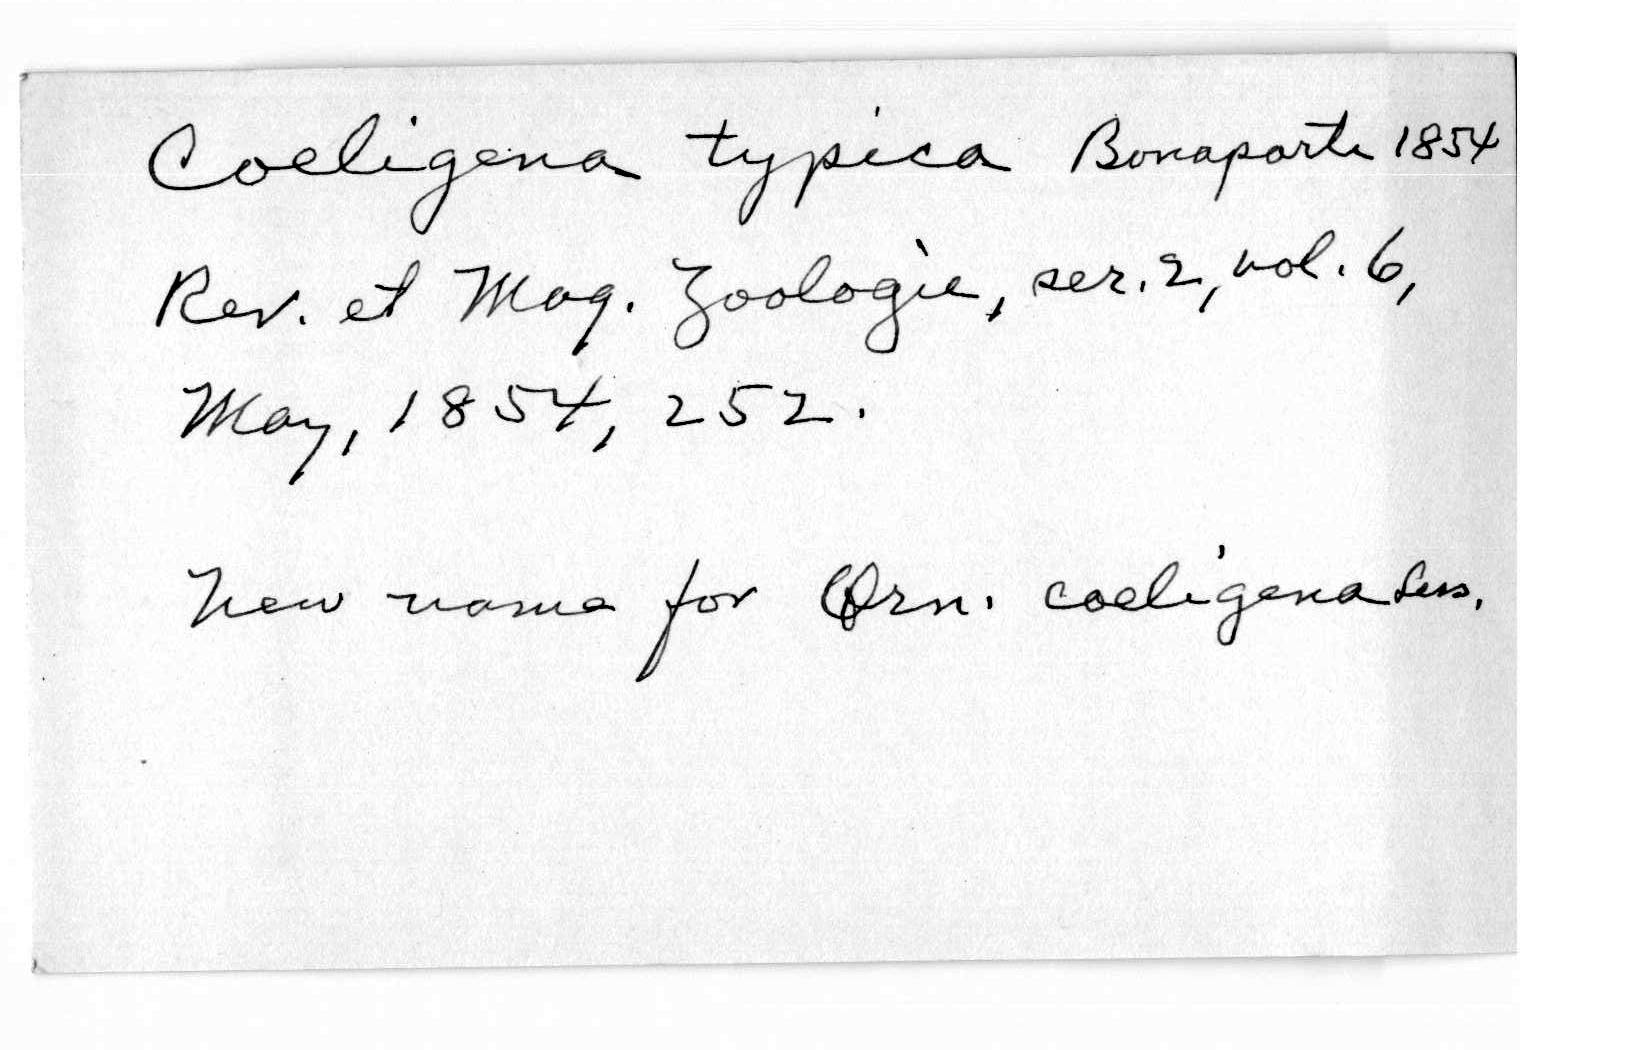 Coeligena typica Bonaparte 1854
Rev. et Mag. Zoologie, ser. 2, vol. 6,
May, 1854, 252.
New name for Orn. coeligena Less.